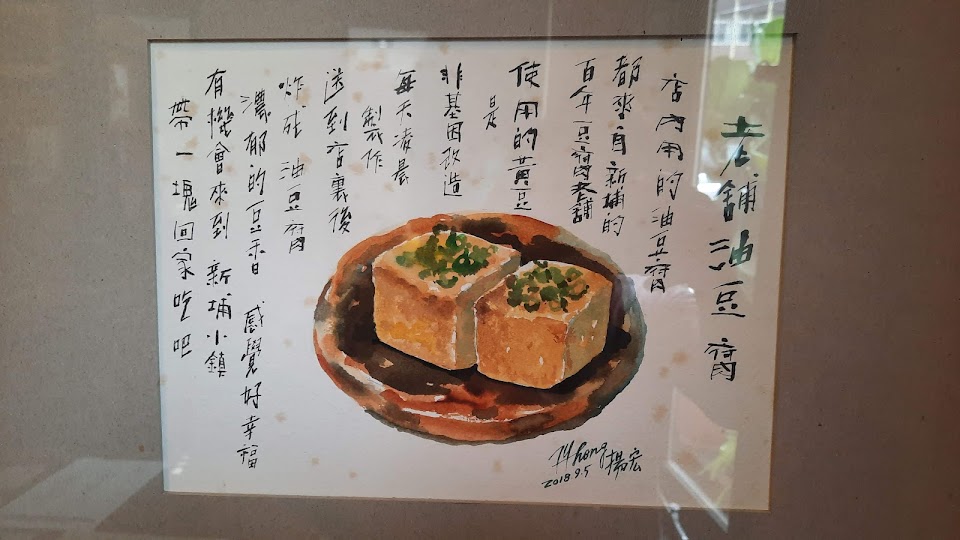 老舖油豆腐
店內用的油豆腐
都來自新埔的
百年豆腐老舖
使用的黃豆
是
非基因改造
每天凌晨
製作
送到店裏後
炸成 油豆腐
濃郁的豆香 感覺好幸福
有機會來到 新埔小鎮
帶一塊回家吃吧
hong 楊宏
2018 9.5